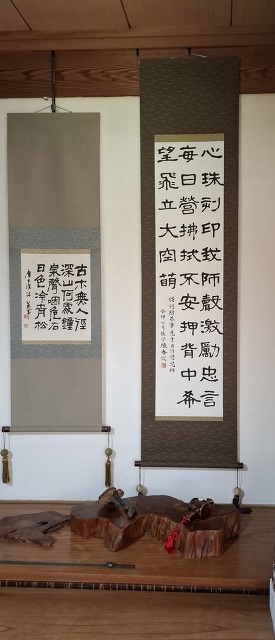 心珠刻印我師激勵忠言
每日營拂拭不安押背中希
望飛立大空萌
古木無人徑
深山何處鐘
泉聲咽危石
日色冷青松